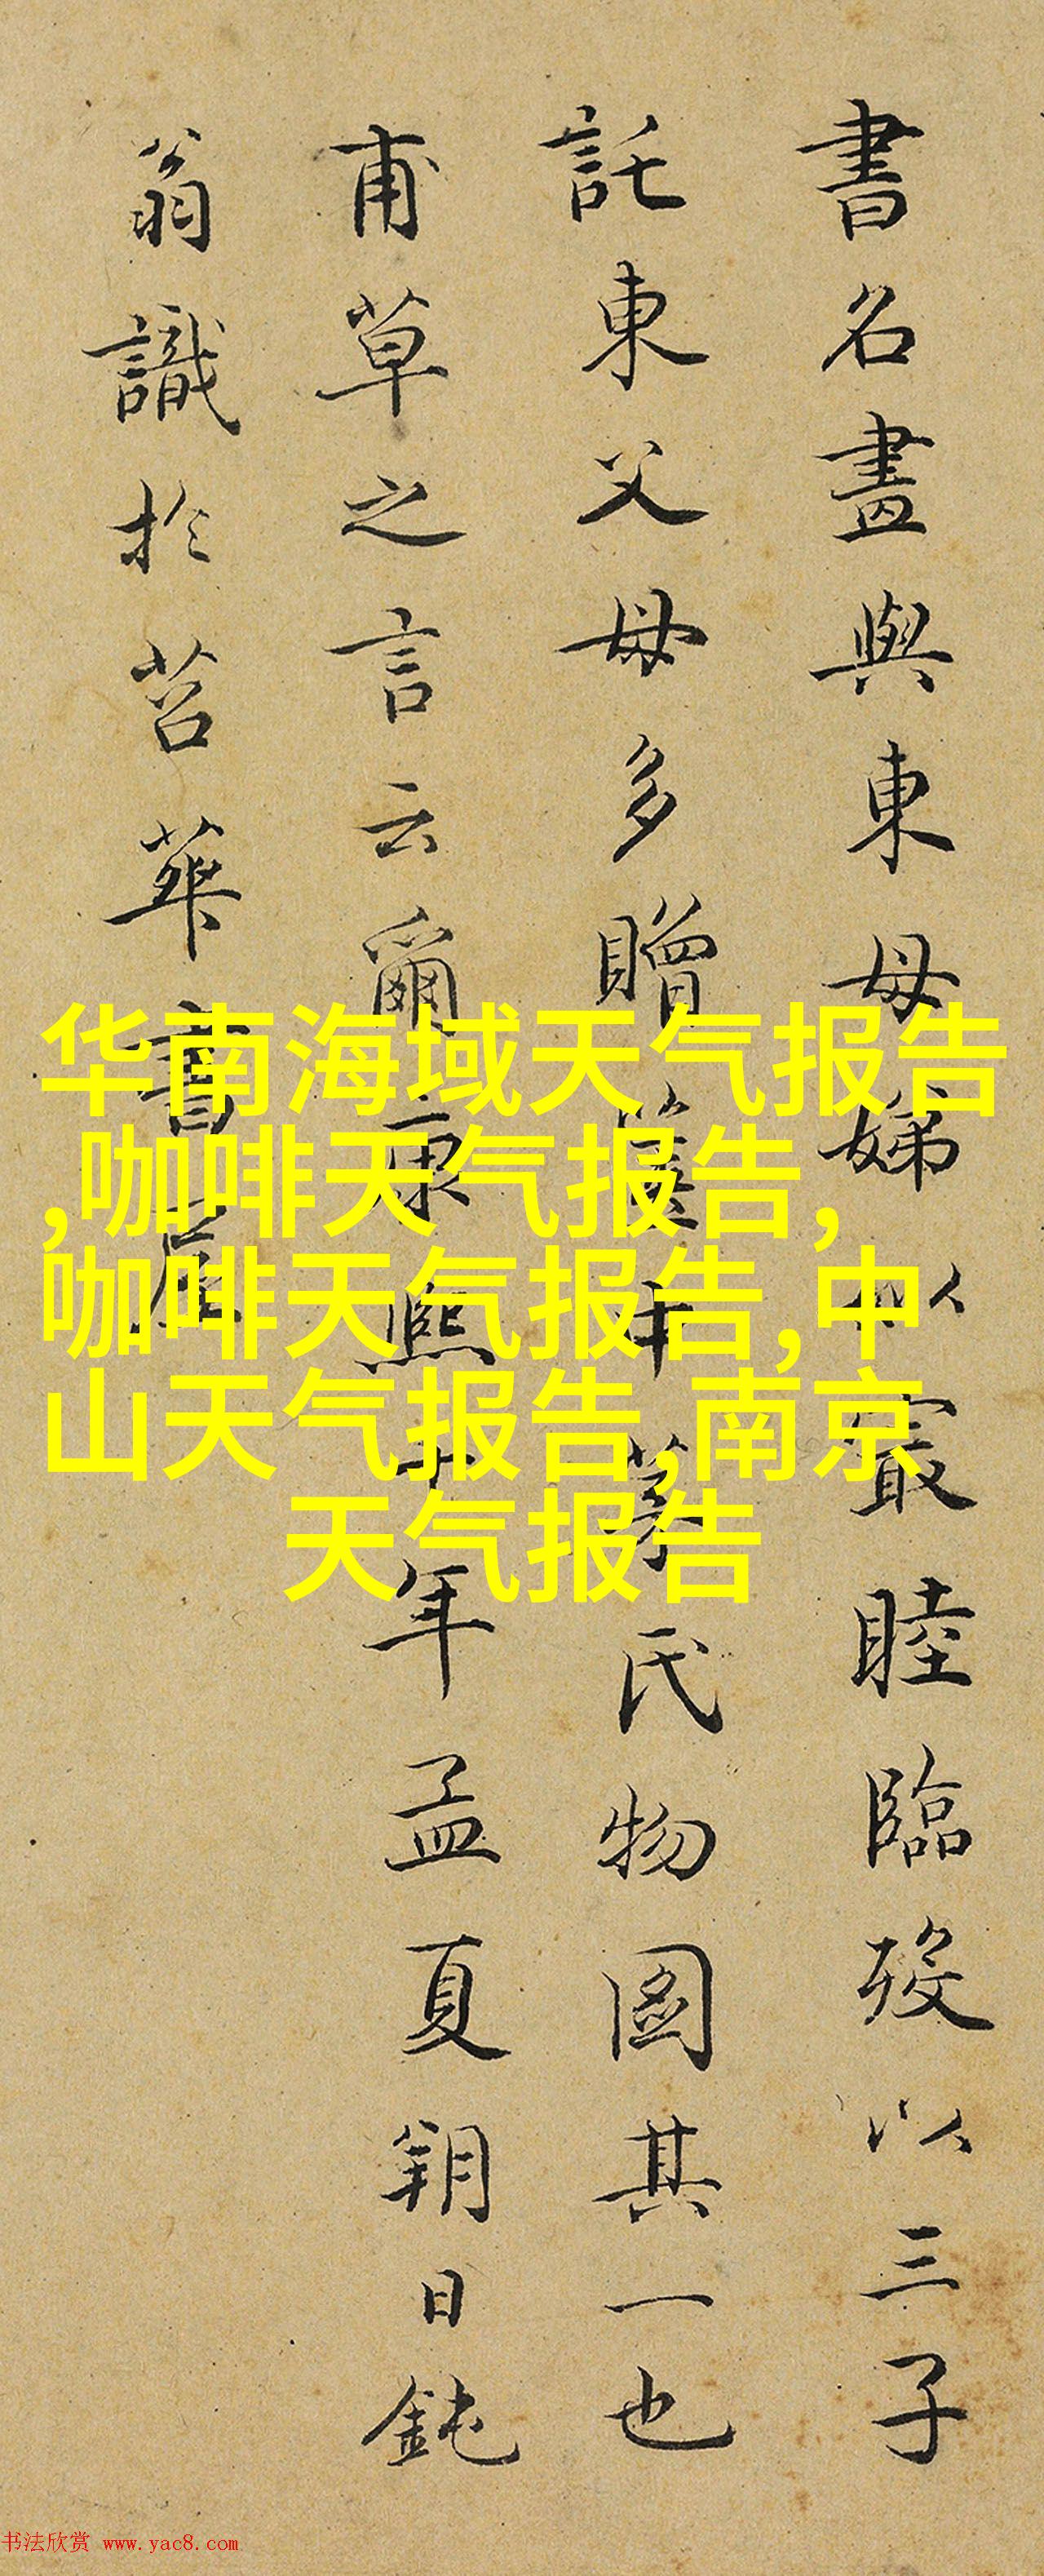 書名畫與東母娣以叢睦臨歿以三子
託東父母多贈篋中摹氏物圖其一也
甫草之言云爾康熙十年孟夏朔日鈍
翁識於苕華書屋
华南海域天气报告
,咖啡天气报告,
咖啡天气报告,中
山天气报告,南京
天气报告
书法欣赏 www.yac8.com